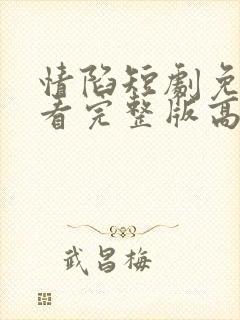 情陷短剧免
看完整版高
武昌梅